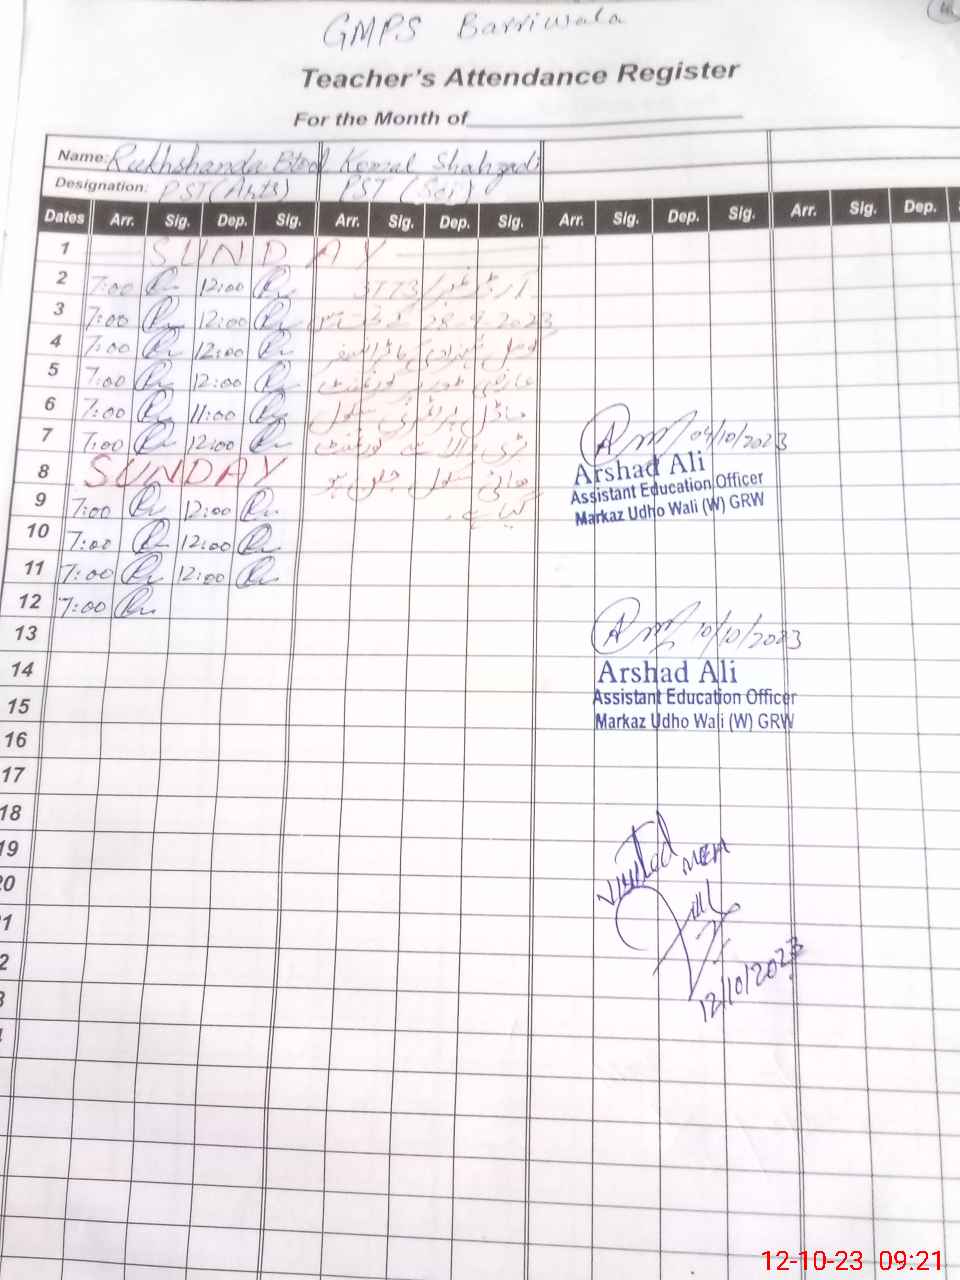 GMPS Barriwala
Teacher's Attendance Register
For the Month of
Name: Rukhshanda Komal Shahzadi
Designation: PST (Arts) PST (Sci)
Dates Arr. Sig. Dep. Sig. Arr. Sig. Dep. Sig. Arr. Sig. Dep. Sig. Arr. Sig. Dep.
1 SUNDAY
2 7:00 12:00 آرڈر نمبر 3773
3 7:00 12:00 28-9-2023 کے تحت مس
4 7:00 12:00 کومل شہزادی کا ٹرانسفر
5 7:00 12:00 عارضی طور پر گورنمنٹ
6 7:00 11:00 ماڈل پرائمری سکول
7 7:00 12:00 بڑی والا سے گورنمنٹ
04/10/2023
8 SUNDAY ہائی سکول ہو
Arshad Ali
Assistant Education Officer
Markaz Udho Wali (W) GRW
9 7:00 12:00 گیا ہے۔
10 7:00 12:00
11 7:00 12:00
12 7:00
13
10/10/2023
14
Arshad Ali
Assistant Education Officer
Markaz Udho Wali (W) GRW
15
16
17
18
19
20
Visited MEA
12/10/2023
12-10-23 09:21